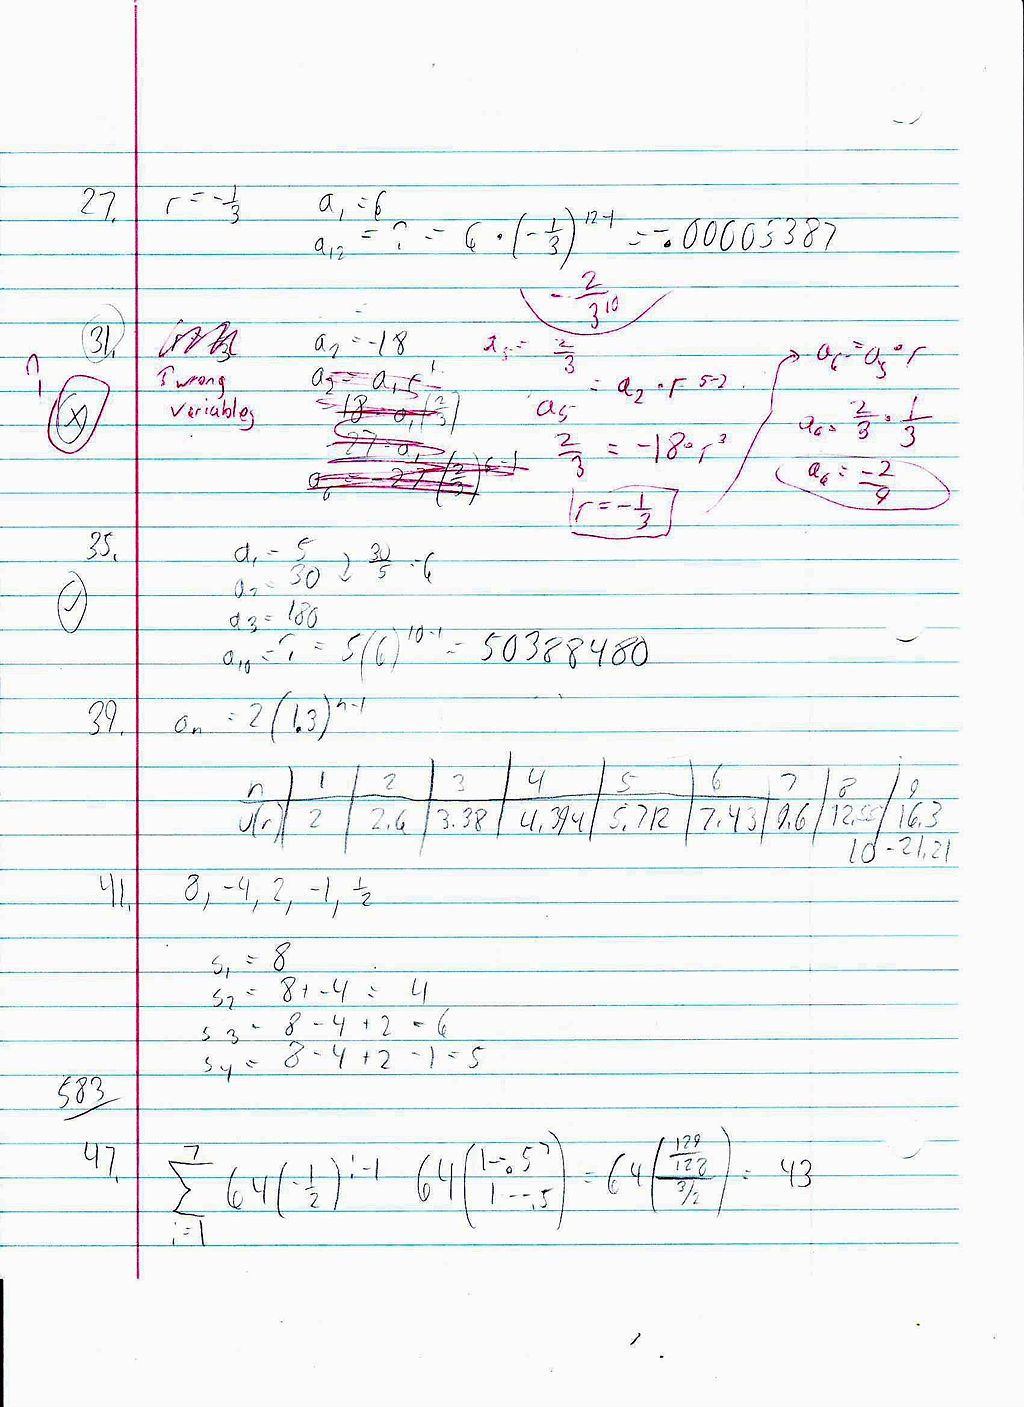 27. r = -1/3 a₁ = 6
a₁₂ = ? = 6 · (-1/3)^12-1 = -.00003387
- 2/3^10
31. a₂ = -18 a₅ = 2/3
wrong variables
a₅ = a₂ · r^5-2
2/3 = -18 · r³
r = -1/3
a₆ = a₅ · r
a₆ = 2/3 · 1/3
a₆ = -2/9
35. a₁ = 5
a₂ = 30 30/5 = 6
a₃ = 180
a₁₀ = ? = 5(6)^10-1 = 50388480
39. aₙ = 2(1.3)^n-1
n 1 2 3 4 5 6 7 8 9
u(n) 2 2.6 3.38 4.394 5.712 7.43 9.6 12.55 16.3
10 - 21.21
41. 8, -4, 2, -1, 1/2
s₁ = 8
s₂ = 8 + -4 = 4
s₃ = 8 - 4 + 2 = 6
s₄ = 8 - 4 + 2 - 1 = 5
583
47. 7 ∑ i=1 64(-1/2)^i-1 64(1--.5^7 / 1--.5) = 64(129/128 / 3/2) = 43